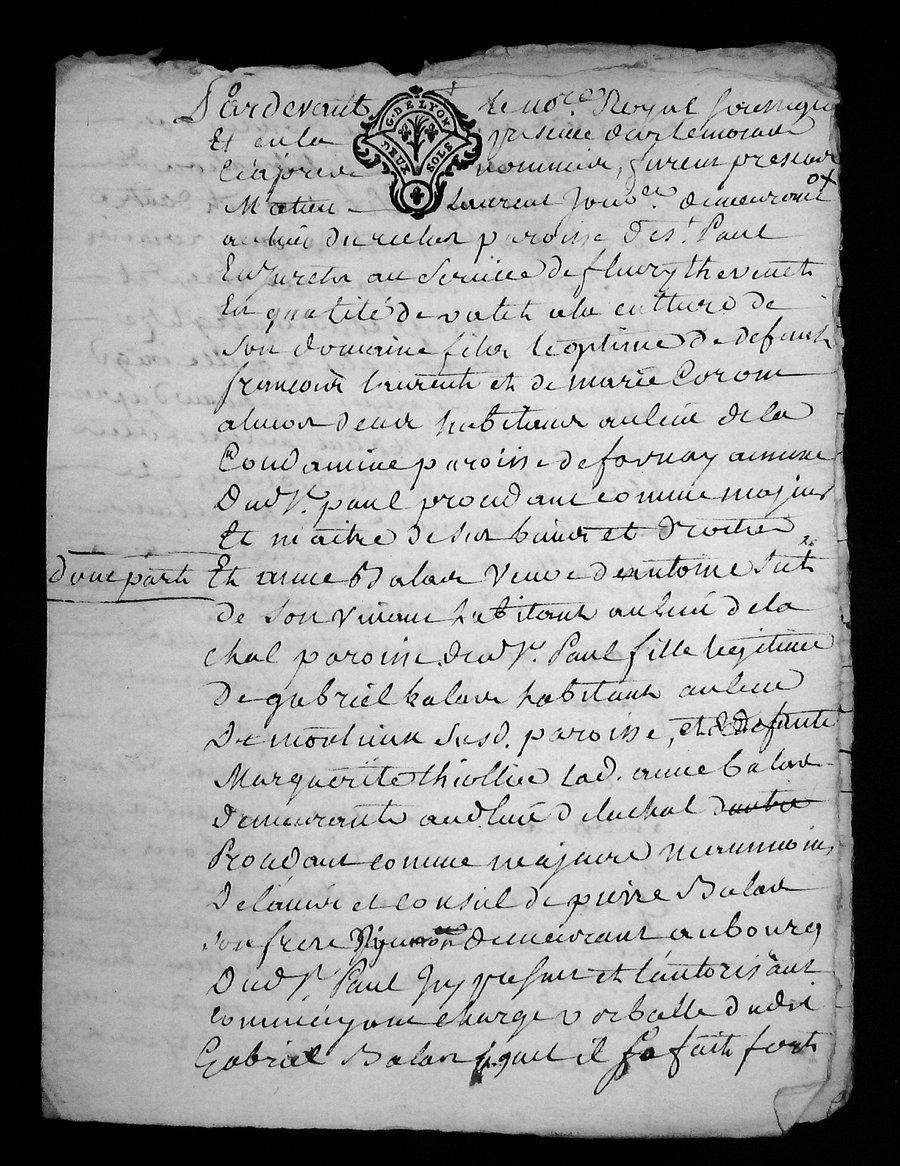 Pardevant le no.re Royal soussigné
G. DE LYON
DEUX SOLS
Et en la presence des temoins
cy apres nommés, furent presents
Matieu Laurent demeurant
au lieu du rocher paroisse de st. Paul
En Jurets au service de fleury thevenet
En qualité de valet a la culture de
son domaine fils legitime de defunt
françois laurent et de marie
habitant au lieu de la
Condamine paroisse de fornay annexe
Dud. st. paul procedant comme majeur
Et maitre de ses biens et droits
d'une part
Et anne Balas Veuve d'antoine
de son vivant habitant au lieu de la
chal paroisse dud st. Paul fille legitime
De gabriel balas habitant au lieu
De susd. paroisse, et de defunte
Marguerite thiollier lad. anne balas
demeurante aud. lieu de la chal
Procedant comme majeure neanmoins
De l'avis et conseil de pierre Balas
son frere demeurant au bourg
Dud st. Paul Icy present et l'autorisant
comme ayant charge verballe dudit
Gabriel Balas duquel il se fait fort